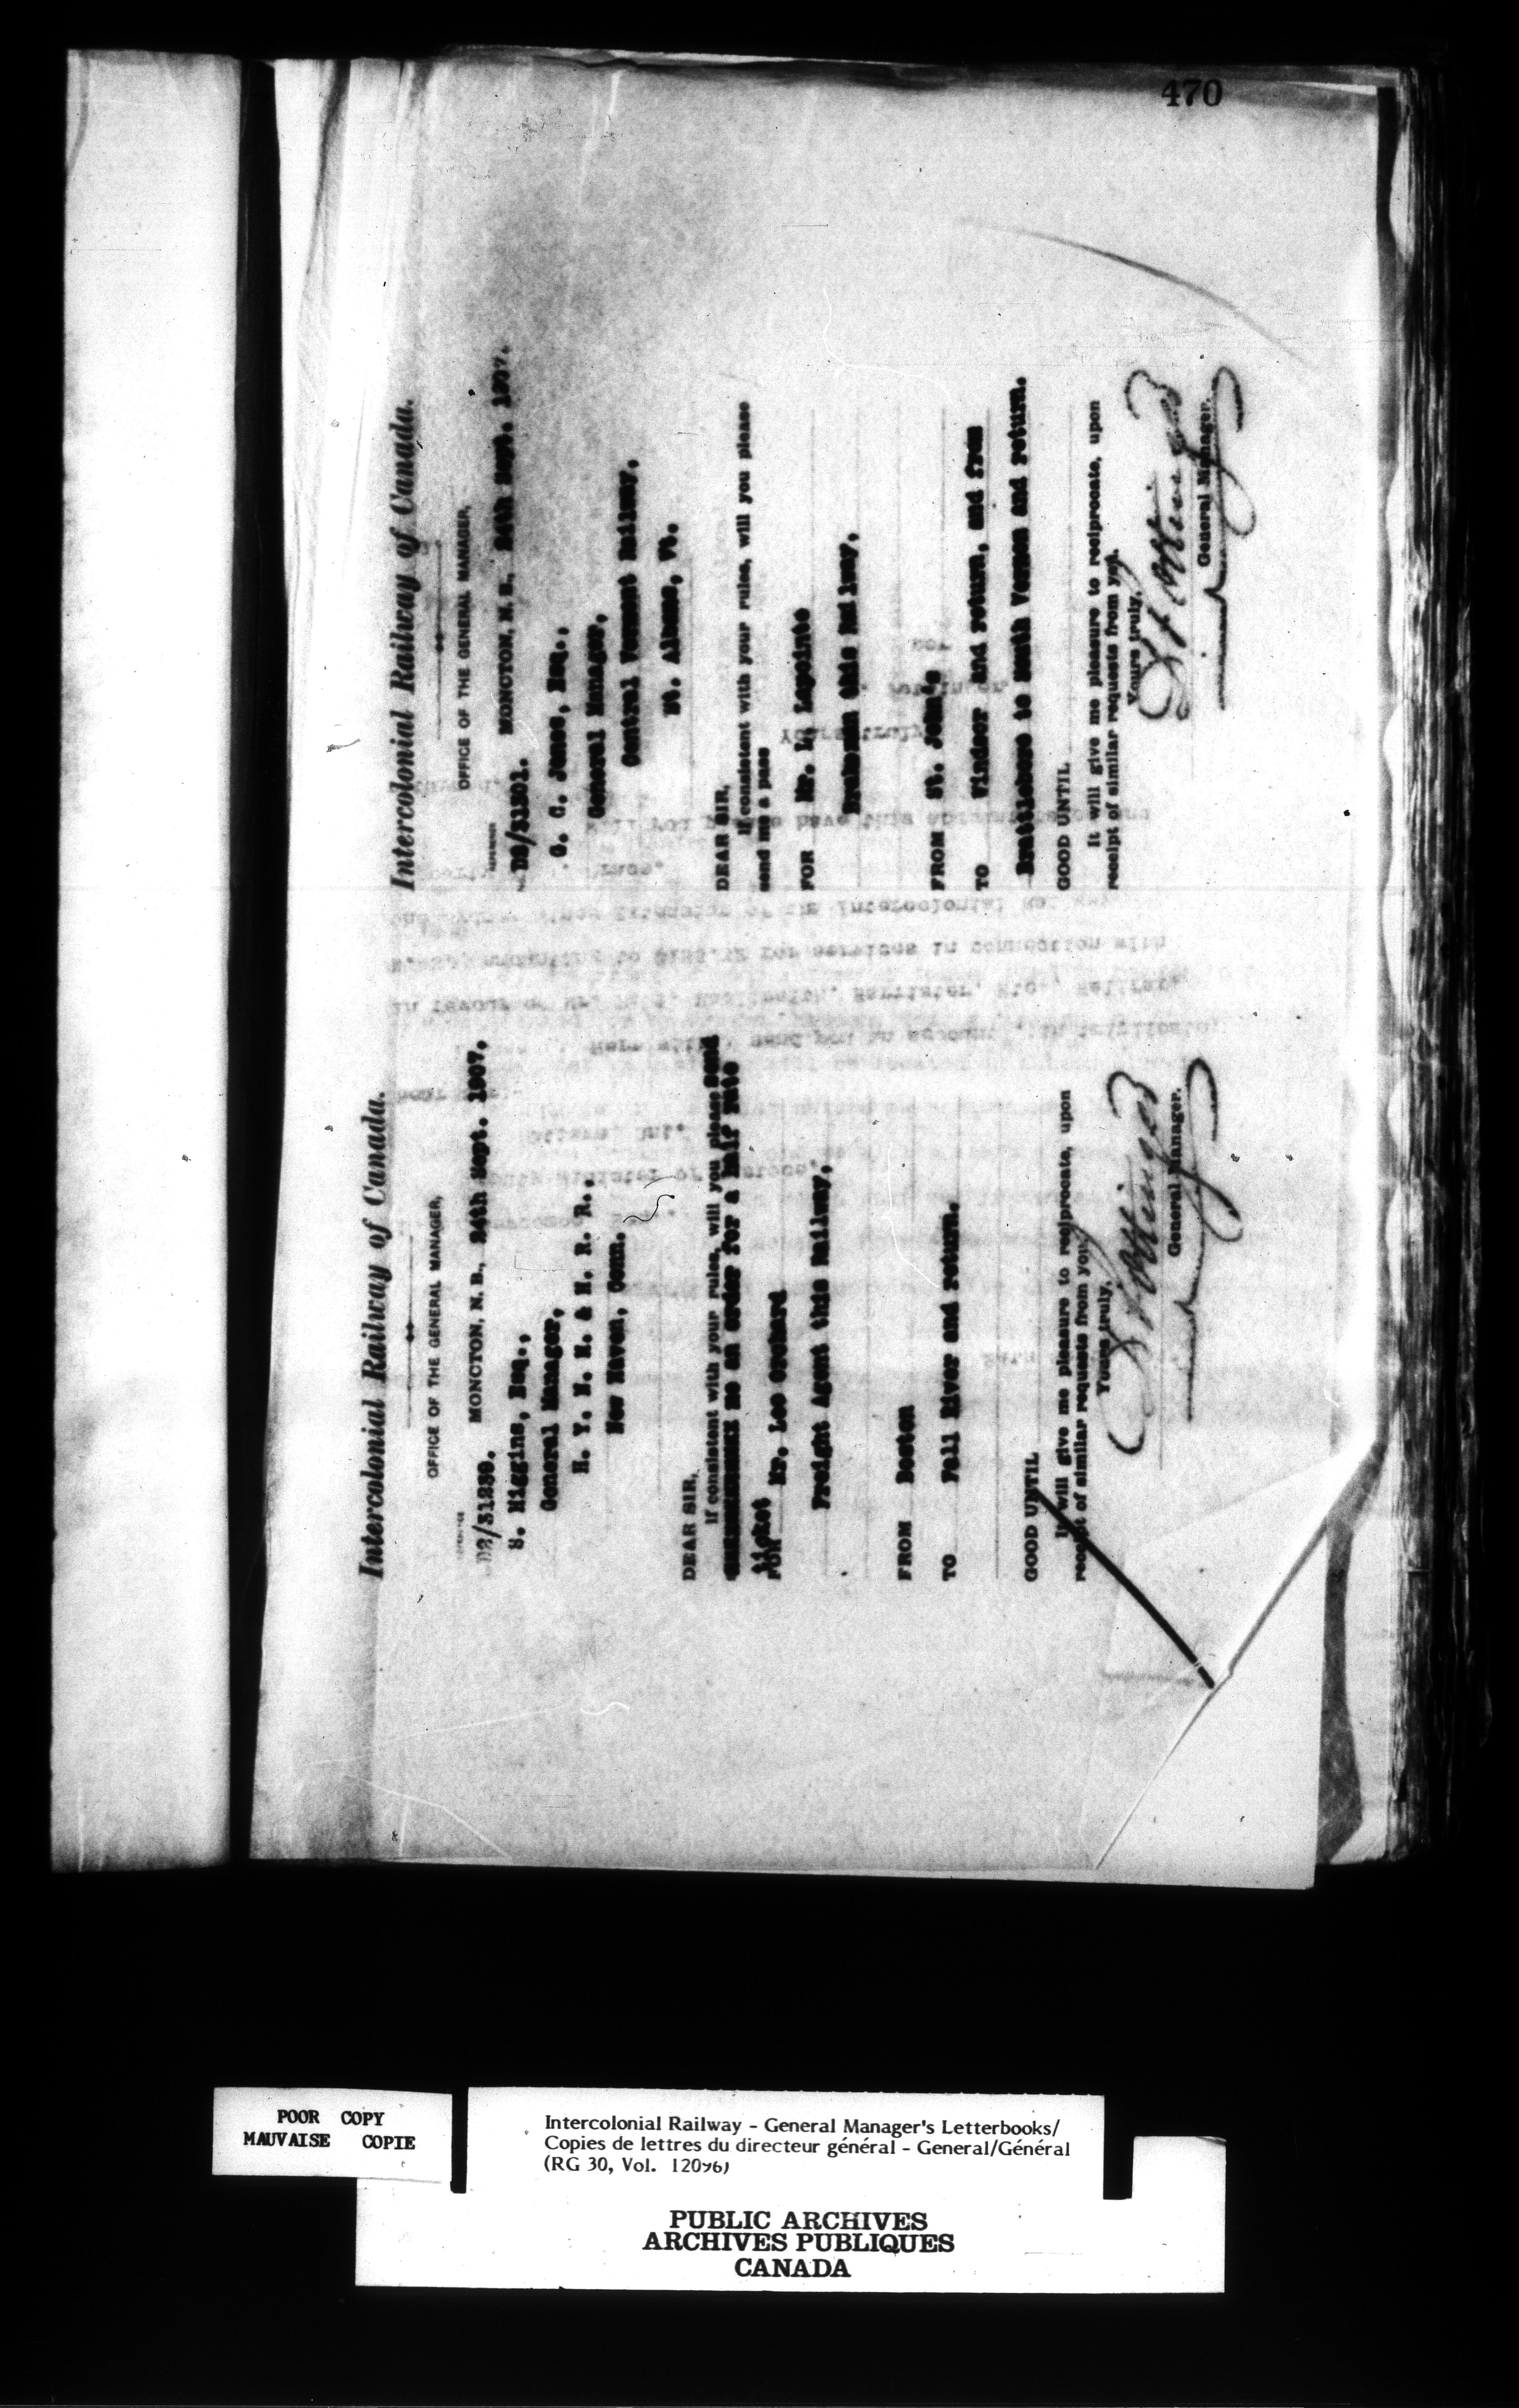 470
Intercolonial Railway of Canada.
OFFICE OF THE GENERAL MANAGER,
REFERENCE
MONCTON, N. B., 24th Sept. 1907.
D2/31239.
S. Higgins, Esq.,
General Manager,
N. Y. N. H. & H. R. R.,
New Haven, Conn.
DEAR SIR,
If consistent with your rules, will you please send
me an order for a half rate
ticket
FOR Mr. Leo Orchard
Freight Agent this Railway,
FROM Boston
TO Fall River and return.
GOOD UNTIL
It will give me pleasure to reciprocate, upon
receipt of similar requests from you.
Yours truly,
D Pottinger
General Manager.
Intercolonial Railway of Canada.
OFFICE OF THE GENERAL MANAGER,
REFERENCE
MONCTON, N. B., 24th Sept. 1907.
D2/31301.
G. C. Jones, Esq.,
General Manager,
Central Vermont Railway,
St. Albans, Vt.
DEAR SIR,
If consistent with your rules, will you please
send me a pass
FOR Mr. L. Lapointe
Brakeman this Railway,
FROM St. Johns
TO Windsor and return, and from
Brattleboro to South Vernon and return.
GOOD UNTIL
It will give me pleasure to reciprocate, upon
receipt of similar requests from you.
Yours truly,
D Pottinger
General Manager.
POOR COPY
MAUVAISE COPIE
Intercolonial Railway - General Manager's Letterbooks/
Copies de lettres du directeur général - General/Général
(RG 30, Vol. 12096)
PUBLIC ARCHIVES
ARCHIVES PUBLIQUES
CANADA